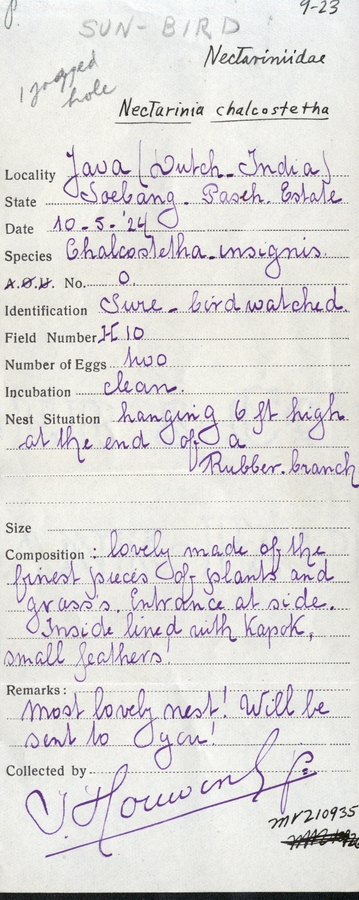 P.
9-23
SUN-BIRD
Nectariniidae
1 jagged
hole
Nectarinia chalcostetha
Locality Java (Dutch-India)
State Soebang. Paseh. Estate
Date 10-5-'24
Species Chalcostetha insignis.
A.O.U. No. O.
Identification Sure - bird watched.
Field Number H 10
Number of Eggs two
Incubation clean.
Nest Situation hanging 6 ft high
at the end of a
Rubber. branch
Size
Composition: lovely made of the
finest pieces of plants and
grass's. Entrance at side.
Inside lined with Kapok,
small feathers!
Remarks:
most lovely nest! Will be
sent to you!
Collected by
MV210935